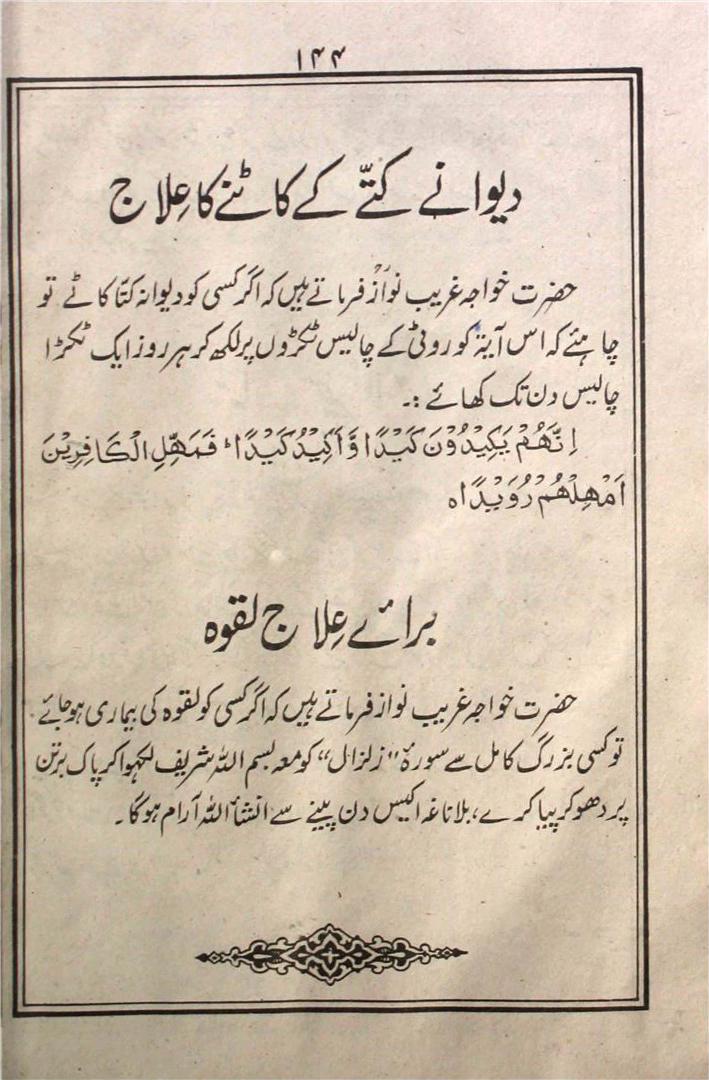 ۱۴۴
دیوانے کتّے کے کاٹنے کا عِلاج
حضرت خواجہ غریب نوازؒ فرماتے ہیں کہ اگر کسی کو دیوانہ کتّا کاٹے تو
چاہئے کہ اس آیۃ کو روٹی کے چالیس ٹکڑوں پر لکھ کر ہر روز ایک ٹکڑا
چالیس دن تک کھائے :۔
اِنَّهُمْ یَكِیْدُوْنَ كَیْدًا وَّاَكِیْدُ كَیْدًا ؕ فَمَهِّلِ الْكَافِرِیْنَ
اَمْهِلْهُمْ رُوَیْدًا ہ
برائے عِلاج لقوہ
حضرت خواجہ غریب نواز فرماتے ہیں کہ اگر کسی کو لقوہ کی بیماری ہو جائے
تو کسی بزرگ کامل سے سورۃ "زلزال" کو معہ بسم اللہ شریف لکھوا کر پاک برتن
پر دھو کر پیا کرے، بلا ناغہ اکیس دن پینے سے انشأ اللہ آرام ہوگا۔